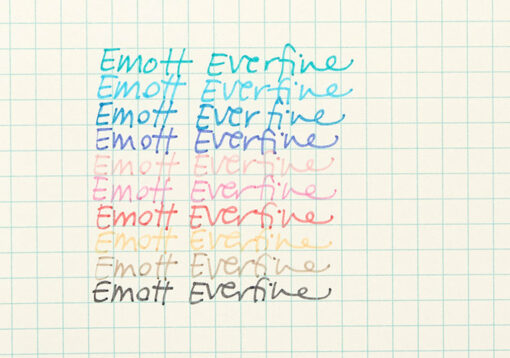 Emott Everfine
Emott Everfine
Emott Everfine
Emott Everfine
Emott Everfine
Emott Everfine
Emott Everfine
Emott Everfine
Emott Everfine
Emott Everfine